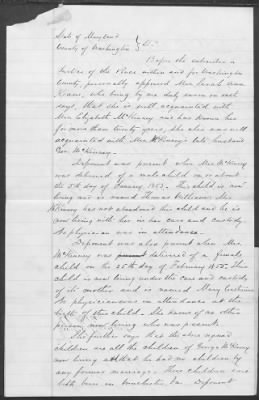 State of Maryland
County of Washington } SS.
Before the subscriber a
Justice of the Peace within and for Washington
County, personally appeared Mrs. Sarah Ann
who being by me duly sworn in each
says, that she is well acquainted with
Mrs Elizabeth McKinney and has known her
for more than twenty years, she also was well
acquainted with Mrs McKinney's late husband
Geo. McKinney.
Deponent was present when Mrs McKinney
was delivered of a male child on or about
the 5th day of January 1853. This child is now
living and is named Thomas William. Mrs
McKinney has not abandoned this child and he is
now living with her in her care and custody.
No physician was in attendance.
Deponent was also present when Mrs.
McKinney was delivered of a female
child on the 25th day of February 1855. This
child is now living in the care and custody
of its mother and is named Mary Catharine
No physician was in attendance at the
birth of this child. She knows of no other
person now living who was present.
She further says that the above named
children are all the children of George McKinney
now living and that he had no children by
any former marriage. These children were
both born in Va. Deponent